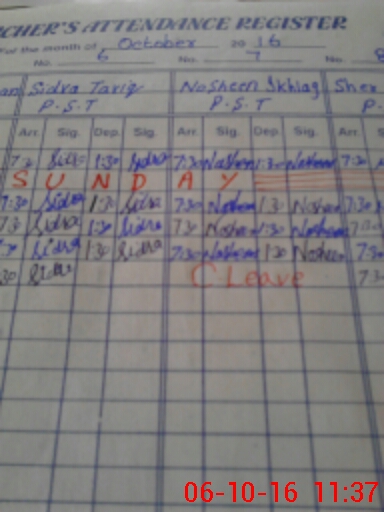 CHER'S ATTENDANCE REGISTER
For the month of October 2016
No. 6 No. 7 No. 8
Sidra Tariq Nosheen Ikhlaq Sher
P.S.T P.S.T
Arr. Sig. Dep. Sig. Arr. Sig. Dep. Sig. Arr.
7:30 Sidra 1:30 Sidra 7:30 Nosheen 1:30 Nosheen 7:30
SUNDAY
7:30 Sidra 1:30 Sidra 7:30 Nosheen 1:30 Nosheen 7:30
7:30 Sidra 1:30 Sidra 7:30 Nosheen 1:30 Nosheen
:30 Sidra 1:30 Sidra 7:30 Nosheen 1:30 Nosheen
:30 Sidra C Leave
06-10-16 11:37